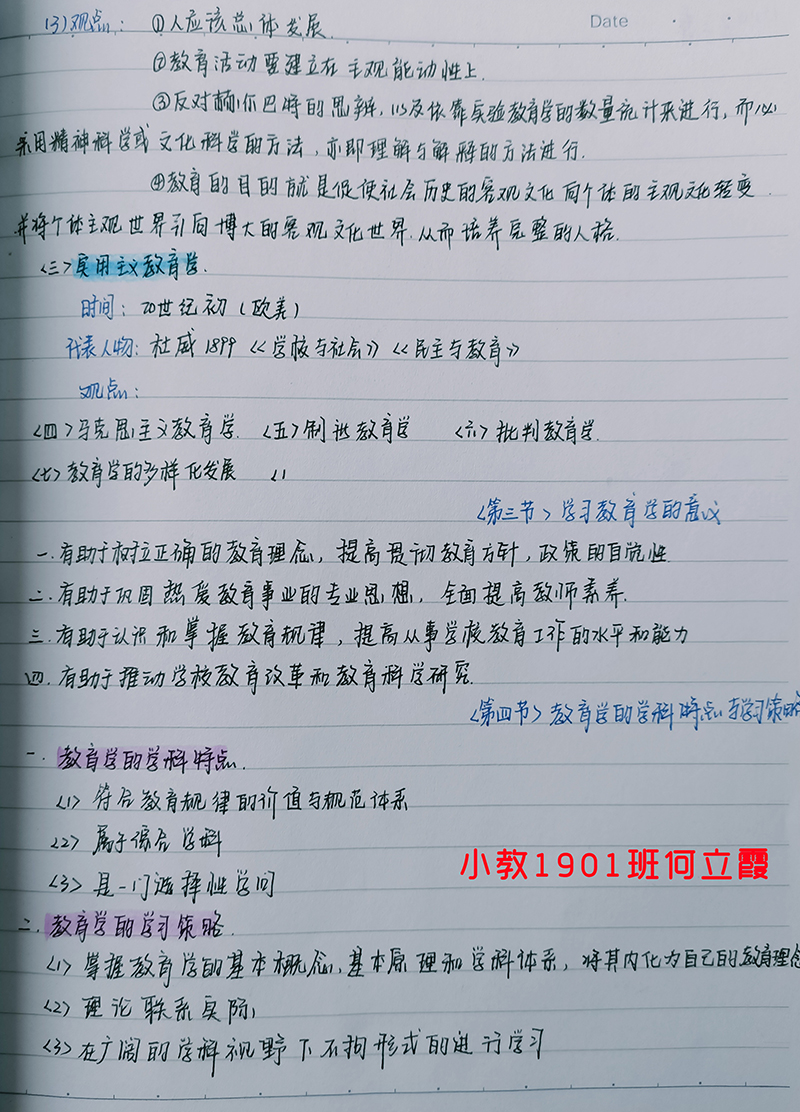 Date
(3)观点：①人应该总体发展.
②教育活动要建立在主观能动性上.
③反对赫尔巴特的思辨，以及依靠实验教育学的数量统计来进行，而必
采用精神科学或文化科学的方法，亦即理解与解释的方法进行.
④教育的目的就是促使社会历史的客观文化向个体的主观文化转变.
并将个体主观世界引向博大的客观文化世界.从而培养完整的人格.
<三>实用主义教育学.
时间：20世纪初（欧美）
代表人物：杜威1899《学校与社会》《民主与教育》
观点：
<四>马克思主义教育学. <五>制度教育学 <六>批判教育学.
<七>教育学的多样化发展
<第三节>学习教育学的意议
一.有助于树立正确的教育理念，提高贯彻教育方针，政策的自觉性.
二.有助于巩固热爱教育事业的专业思想，全面提高教师素养.
三.有助于认识和掌握教育规律，提高从事学校教育工作的水平和能力
四.有助于推动学校教育改革和教育科学研究.
<第四节>教育学的学科特点与学习策略
一.教育学的学科特点.
<1>符合教育规律的价值与规范体系
<2>属于综合学科
<3>是一门选择性学问
小教1901班何立霞
二.教育学的学习策略.
<1>掌握教育学的基本概念、基本原理和学科体系，将其内化为自己的教育理念
<2>理论联系实际，
<3>在广阔的学科视野下不拘形式的进行学习